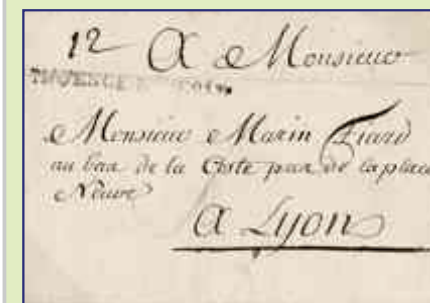 12 A Monsieur
Monsieur Marin
au bas de la Coste de la place
Neuve
A Lyon